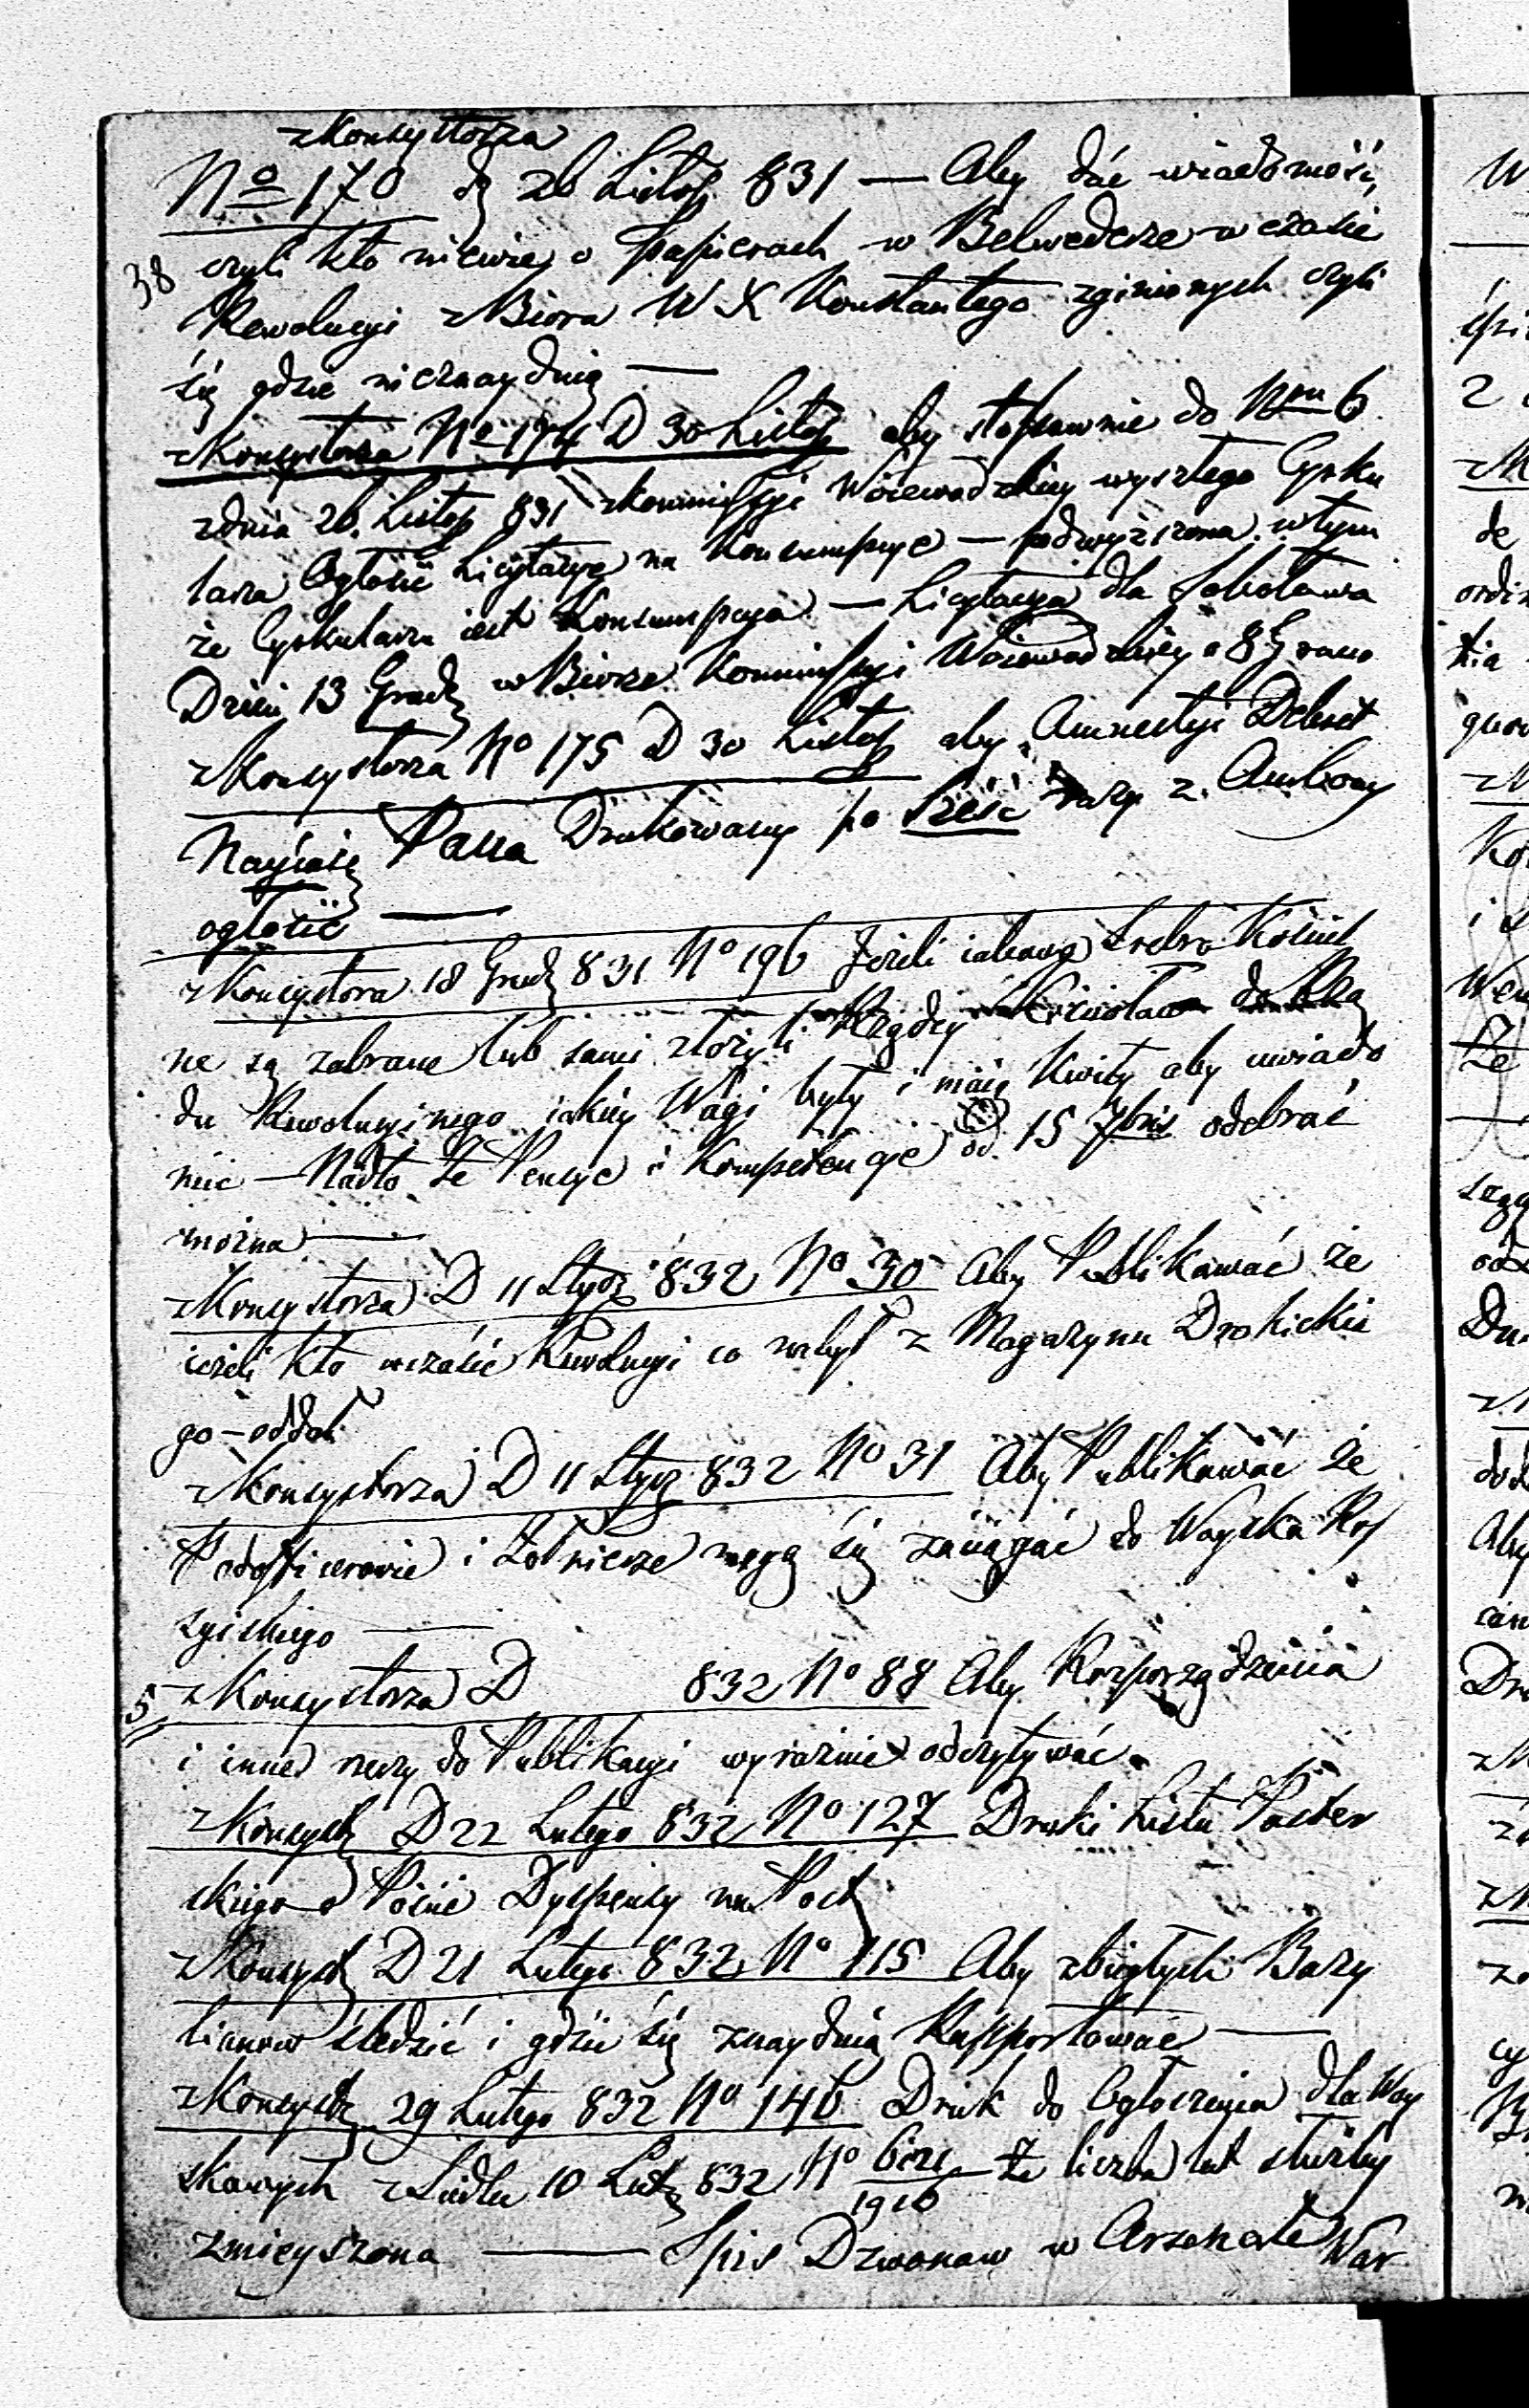 z Konsystorza
No 170 d 26 Listop 831 — Aby dać wiadomość,
38 czyli kto niewie o Papierach w Belwederze w czasie
Rewolucyi z Biora W X Konstantego zginionych czyli
się gdzie nieznaydują —
z Konsystorza No 174 D 30 Listop aby stosownie do Nru 6
z dnia 26. Listop 831 z kommissyi Woiewodzkiey wyszłego Cyrku
larza Ogłosić Licytacyę na Konsumpcye — podwyższona w tym
że Cyrkularzu iest Konsumpcya — Licytacya dla
Dzień 13 Grud w Biorze Kommissyi Woiewodzkiey o 8 G rano
z Konsystorza No 175 D 30 Listop aby Amnestyi Dekret
Nayiaś Pana Drukowany po sześć razy z Ambony
ogłosić —
z Konsystora 18 Grud 831 No 196 Jeżeli iakowe Srebra Kościel
ne są zabrane lub sami złożyli Rządcy Kościołow do Rzą
du Rewolucyinego iakiey Wagi były i maią Kwity aby uwiado
mić — Nadto że Pensye i Kompetencye od 15 7bris odebrać
można —
z Konsystorza D 11 Stycz 832 No 30 Aby Publikować że
ieżeli kto w czasie Rewolucyi co nabył z Magazynu Drohickie
go — oddał
z Konsystorza D 11 Stycz 832 No 31 Aby Publikować że
Podofficerowie i Żołnierze mogą się zaciągać do Woyska Ros
syiskiego —
5 z Konsystorza D 832 No 88 Aby Rozporządzenia
i inne rzeczy do Publikacyi wyraźnie odczytywać
z Konsyst D 22 Lutego 832 No 127 Druki Listu Paster
skiego o Poście Dyspensy na Post
z Konsyst D 21 Lutego 832 No 115 Aby zbiegłych Bazy
lianow śledzić i gdzie się znaydują Rapportować —
z Konsyst 29 Lutego 832 No 146 Druk do Ogłoszenia dla Woy
skowych z Siedlec 10 Lut 832 No że liczba lat służby
zmieyszona — Spis Dzwonow w Arsenale War